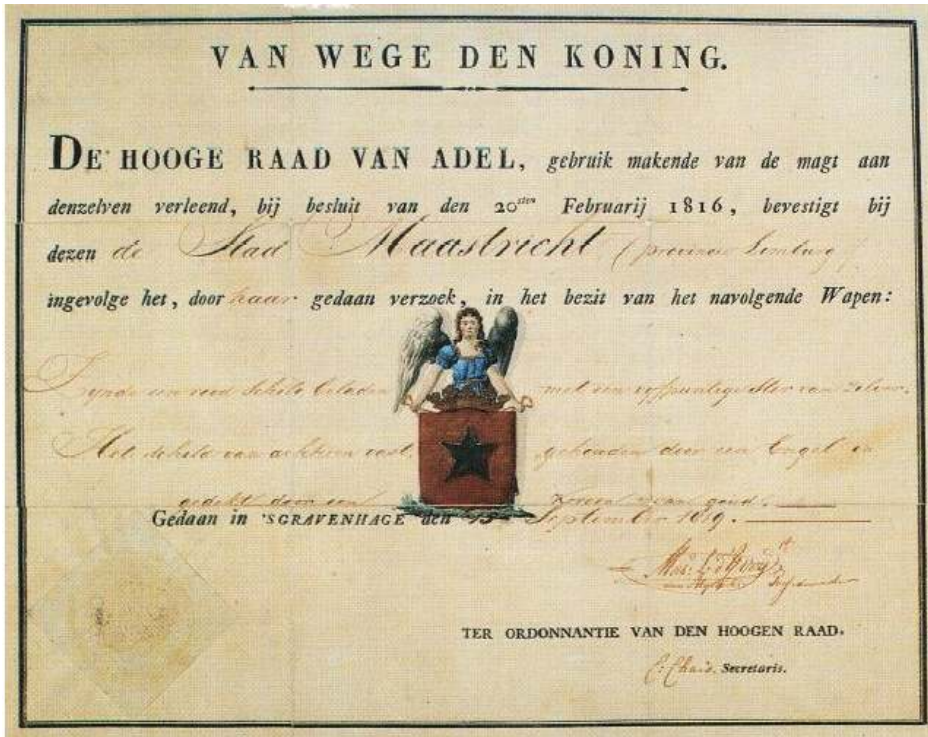 VAN WEGE DEN KONING.
DE HOOGE RAAD VAN ADEL, gebruik makende van de magt aan
denzelven verleend, bij besluit van den 20sten Februarij 1816, bevestigt bij
dezen de Stad Maastricht (provincie Limburg)
ingevolge het, door haar gedaan verzoek, in het bezit van het navolgende Wapen:
Zynde een rood Schild beladen met een vyfpuntige Ster van Zilver.
Het schild van achteren vast gehouden door een Engel en
gedekt door een van goud.
Gedaan in 'SGRAVENHAGE den 15 September 1819.
TER ORDONNANTIE VAN DEN HOOGEN RAAD.
Secretaris.